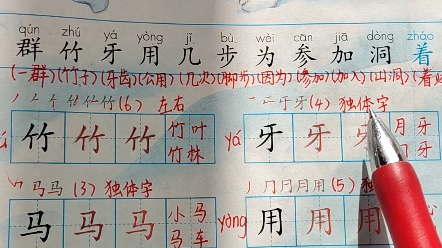 qún zhú yá yòng jǐ bù wèi cān jiā dòng zháo
群 竹 牙 用 几 步 为 参 加 洞 着
(一群)(竹子)(牙齿)(公用)(几次)(脚步)(因为)(参加)(加入)(山洞)(着
(6) 左右
(4) 独体字
竹 竹 竹 竹叶 竹林
yá 牙 牙 牙 月牙 门牙
马马 (3) 独体字
用 (5) 独
马 马 马 小马 马车
yòng 用 用 用